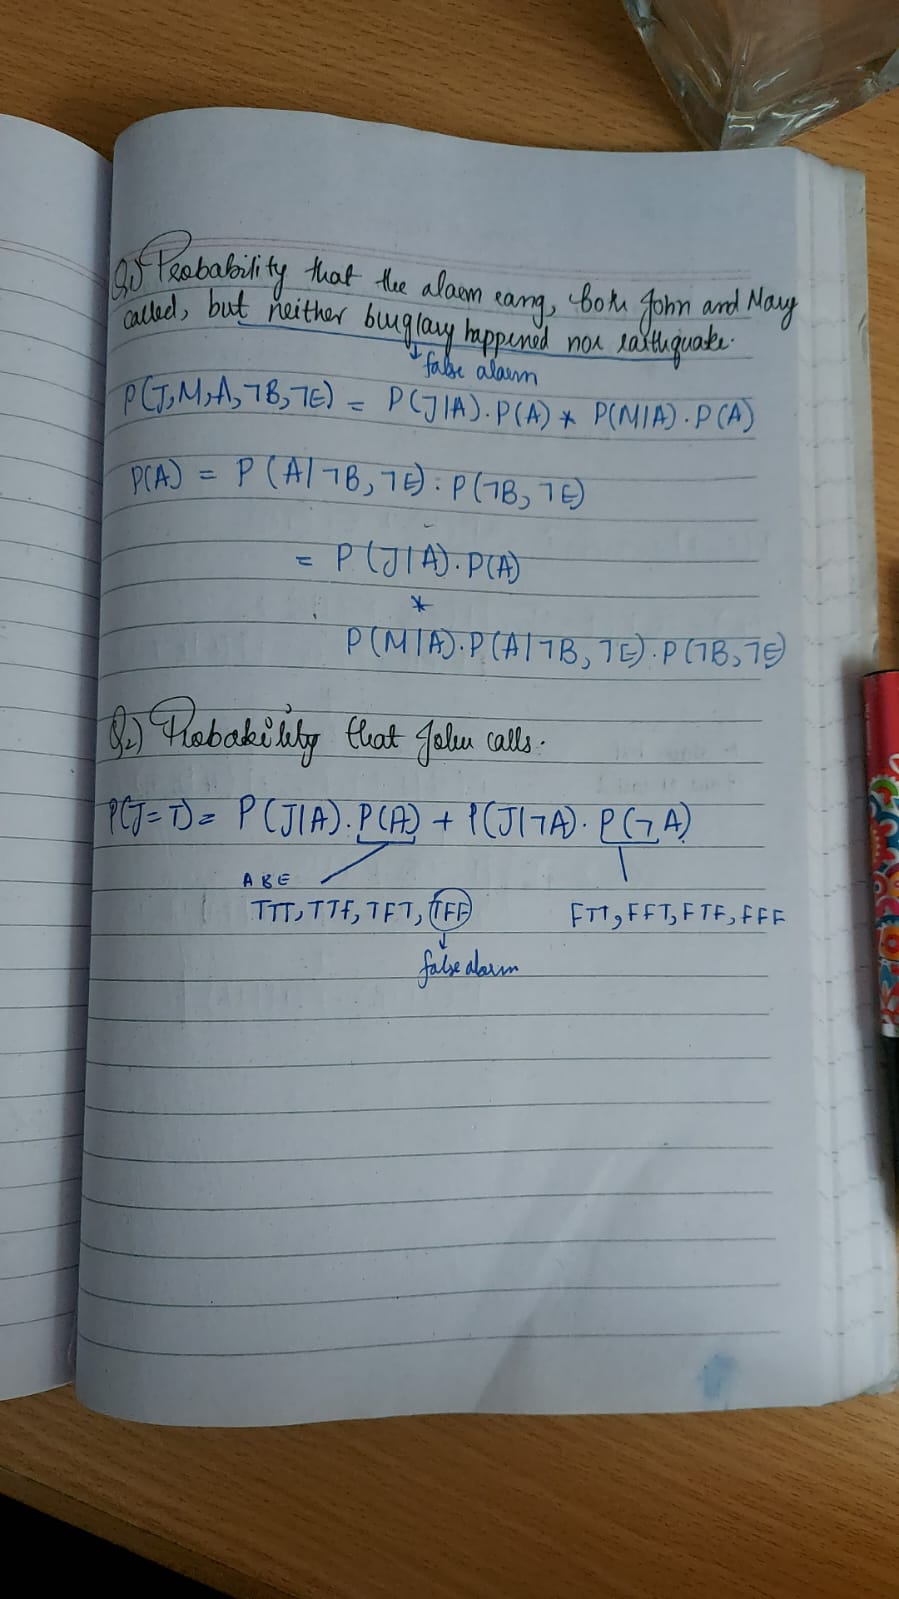 Q1) Probability that the alarm rang, both John and Mary
called, but neither burglary happened nor earthquake.
false alarm
P(J,M,A,¬B,¬E) = P(J|A).P(A) * P(M|A).P(A)
P(A) = P(A|¬B,¬E).P(¬B,¬E)
= P(J|A).P(A)
*
P(M|A).P(A|¬B,¬E).P(¬B,¬E)
Q2) Probability that John calls.
P(J=T)= P(J|A).P(A) + P(J|¬A).P(¬A)
A B E
TTT, TTF, TFT, TFF FTT, FFT, FTF, FFF
false alarm